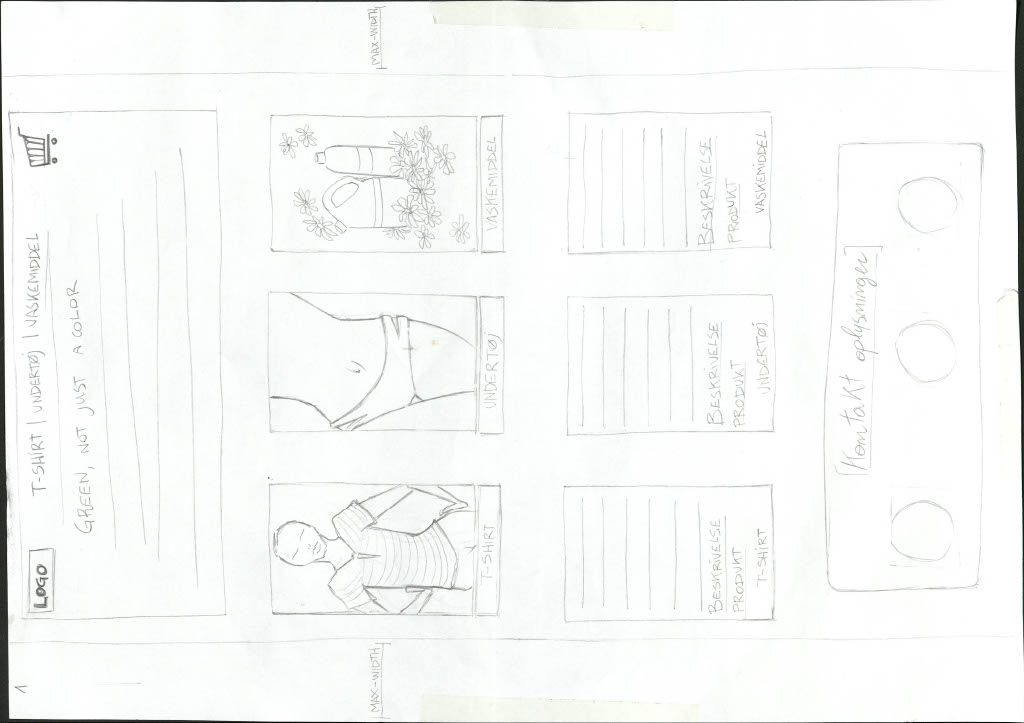 1
LOGO
T-SHIRT | UNDERTØJ | VASKEMIDDEL
GREEN, NOT JUST A COLOR
MAX-WIDTH
MAX-WIDTH
T-SHIRT
UNDERTØJ
VASKEMIDDEL
BESKRIVELSE
PRODUKT
T-SHIRT
BESKRIVELSE
PRODUKT
UNDERTØJ
BESKRIVELSE
PRODUKT
VASKEMIDDEL
[Kontakt oplysninger]